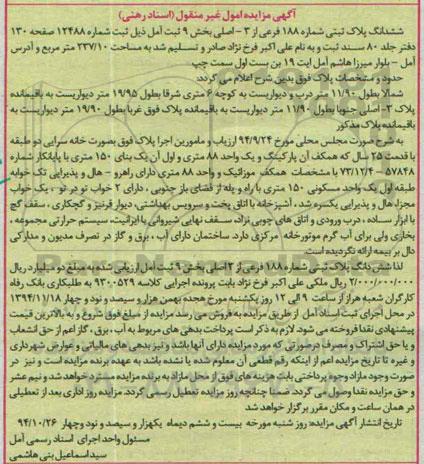 آگهی مزایده اموال غیر منقول (اسناد رهنی)
ششدانگ پلاک ثبتی شماره ۱۸۸ فرعی از ۳ - اصلی بخش ۹ ثبت آمل ذیل ثبت شماره ۱۲۴۸۸ صفحه ۱۳۰
دفتر جلد ۸۰ سند ثبت و به نام علی اکبر فرخ نژاد صادر و تسلیم شد به مساحت ۲۳۷/۱۰ متر مربع و آدرس
آمل - بلوار میرزا هاشم آملی آیت ۱۹ بن بست اول سمت چپ
حدود و مشخصات پلاک فوق بدین شرح اعلام می گردد:
شمالا بطول ۱۱/۹۰ متر درب و دیواریست به کوچه ۶ متری شرقا بطول ۱۹/۹۵ متر دیواریست به باقیمانده
پلاک ۳- اصلی جنوبا بطول ۱۱/۹۰ متر دیواریست به باقیمانده پلاک فوق غربا بطول ۱۹/۹۰ متر دیواریست به
باقیمانده پلاک مذکور
به شرح صورت مجلس محلی مورخ ۹۴/۹/۲۴ ارزیاب و مامورین اجرا پلاک فوق بصورت خانه سرایی دو طبقه
با قدمت ۲۵ سال که همکف آن پارکینگ و یک واحد ۸۸ متری و اول آن یک بنای ۱۵۰ متری با پایانکار شماره
۵۷۸۴۸ – ۷۳/۱۲/۴ با مشخصات همکف موزائیک و واحد ۸۸ متری دارای راهرو - هال و پذیرایی تک خوابه
طبقه اول یک واحد مسکونی ۱۵۰ متری با راه و پله از فضای باز جنوبی ، دارای ۲ خواب تو در تو ، یک خواب
مجزا، هال و پذیرایی یکسره شد ، آشپزخانه با اتاق پخت و سرویس بهداشتی، دیوار قرنیز و گچکاری ، سقف گچ
با ابزار ساده ، درب ورودی و اتاق های چوبی نژاد، سقف نهایی شیروانی با ایرانیت، سیستم حرارتی مجموعه ،
بخاری ولی برای آب گرم موتورخانه مرکزی دارد. ساختمان دارای آب ، برق و گاز در تصرف مدیون و مدارکی
دال بر بیمه ارائه نگردیده است
لذا شش دانگ پلاک ثبتی شماره ۱۸۸ فرعی از ۳ اصلی بخش ۹ ثبت آمل ارزیابی شده به مبلغ دو میلیارد ریال
۲/۰۰۰/۰۰۰/۰۰۰ ریال ملکی علی اکبر فرخ نژاد بابت پرونده اجرایی کلاسه ۹۳۰۰۵۲۹ به طلبکاری بانک رفاه
کارگران شعبه هراز از ساعت ۹ الی ۱۲ روز یکشنبه مورخ هجده بهمن هزار و سیصد و نود و چهار ۱۳۹۴/۱۱/۱۸
در محل اجرای ثبت اسناد آمل از طریق مزایده به فروش می رسد مزایده از مبلغ فوق شروع و به بالاترین قیمت
پیشنهادی نقدا فروخته می شود. لازم به ذکر است پرداخت بدهی های مربوط به آب ، برق ، گاز اعم از حق انشعاب
و یا حق اشتراک و مصرف درصورتی که مورد مزایده دارای آنها باشد و نیز بدهی های مالیاتی و عوارض شهرداری
و غیره تا تاریخ مزایده اعم از اینکه رقم قطعی آن معلوم شده یا نشده باشد به عهده برنده مزایده است و نیز در
صورت وجود مازاد وجوه پرداختی بابت هزینه های فوق از محل مازاد به برنده مزایده مسترد خواهد شد و نیم عشر
و حق مزایده نقدا وصول می گردد. ضمنا چنانچه روز مزایده تعطیل رسمی گردد، مزایده روز اداری بعد از تعطیلی
در همان ساعت و مکان مقرر برگزار خواهد شد
تاریخ انتشار آگهی مزایده: روز شنبه مورخه بیست و ششم دیماه یکهزار و سیصد و نود وچهار ۹۴/۱۰/۲۶
مسئول واحد اجرای اسناد رسمی آمل
سید اسماعیل بنی هاشمی